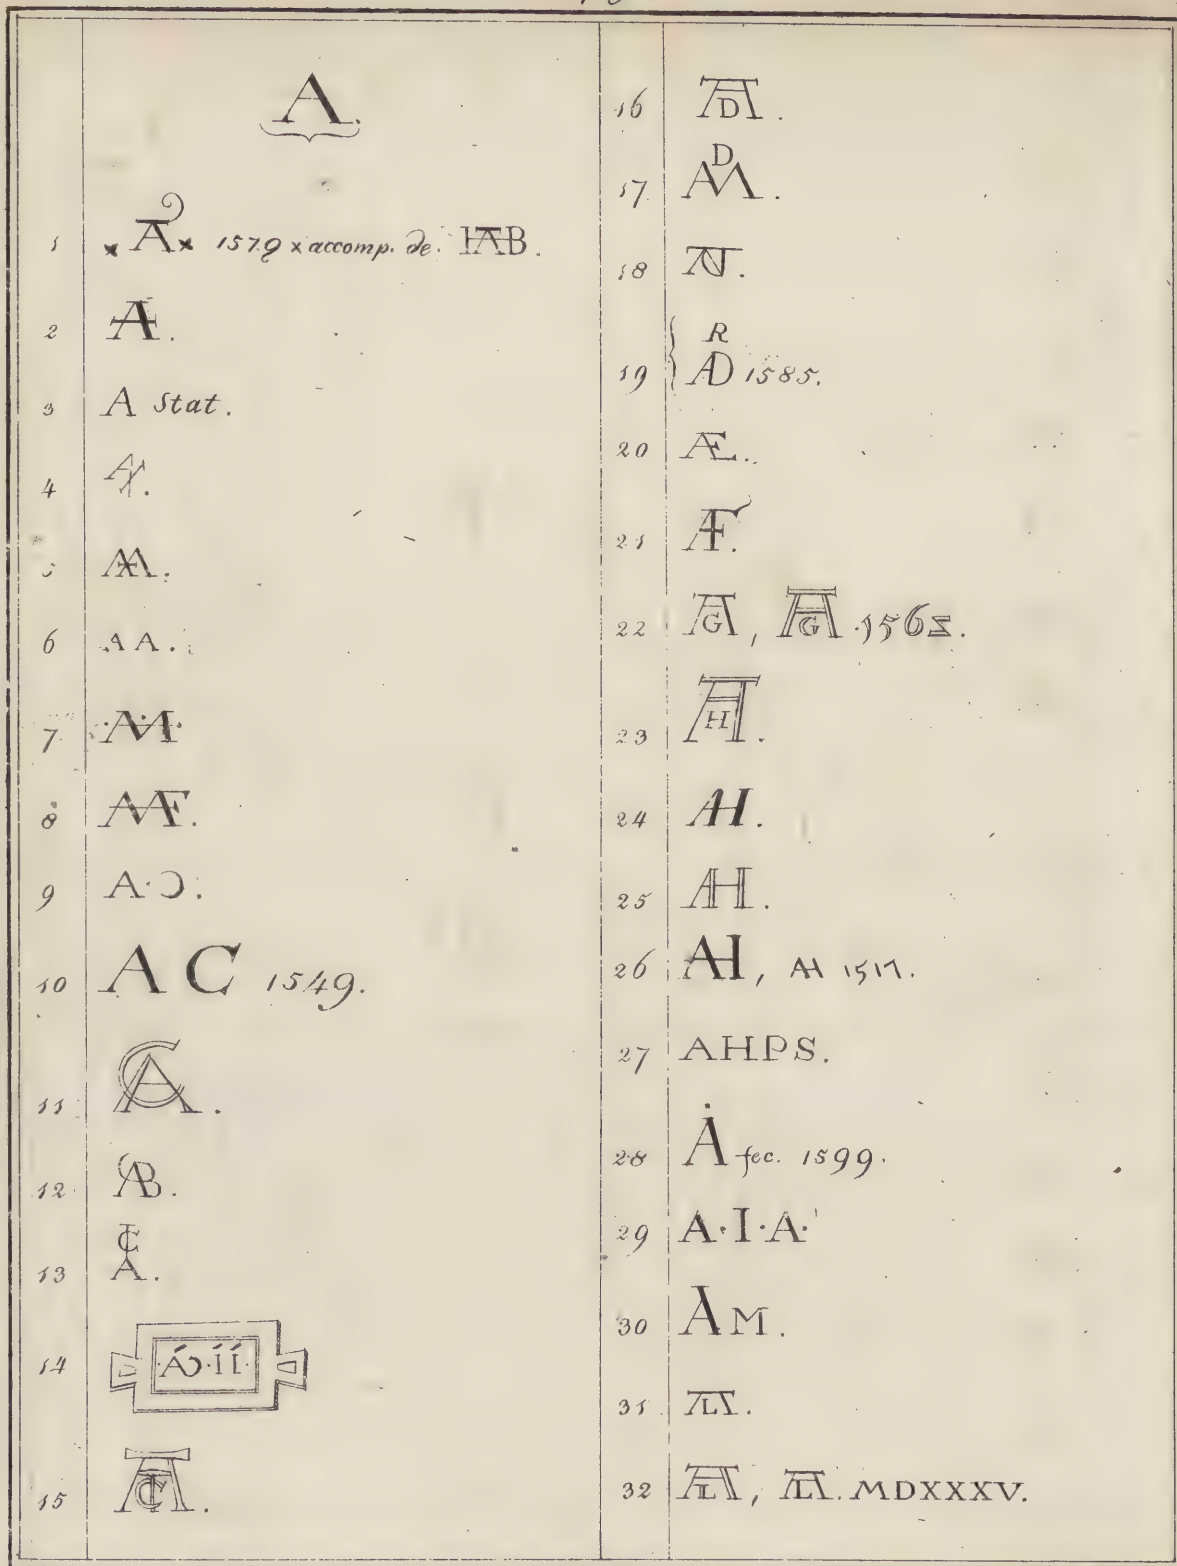 A.
1 × A × 1579 × accomp. de. HAB.
2 A.
3 A Stat.
4
5 AA.
6 AA.
7 ·A·A·
8 AAF.
9 A·Ɔ.
10 A C 1549.
11 CA.
12 CAB.
13 C A.
14 ·ÁƆ·ÍÍ·
15 ACT.
16 AD.
17 D AM.
18
19 R AD 1585.
20 AE.
21 AF.
22 AG, AG ·1562.
23 AH.
24 AH.
25 AH.
26 AH, AH 1517.
27 AHPS.
28 Ȧ fec. 1599.
29 A·I·A·
30 AM.
31
32 AL, AL. MDXXXV.